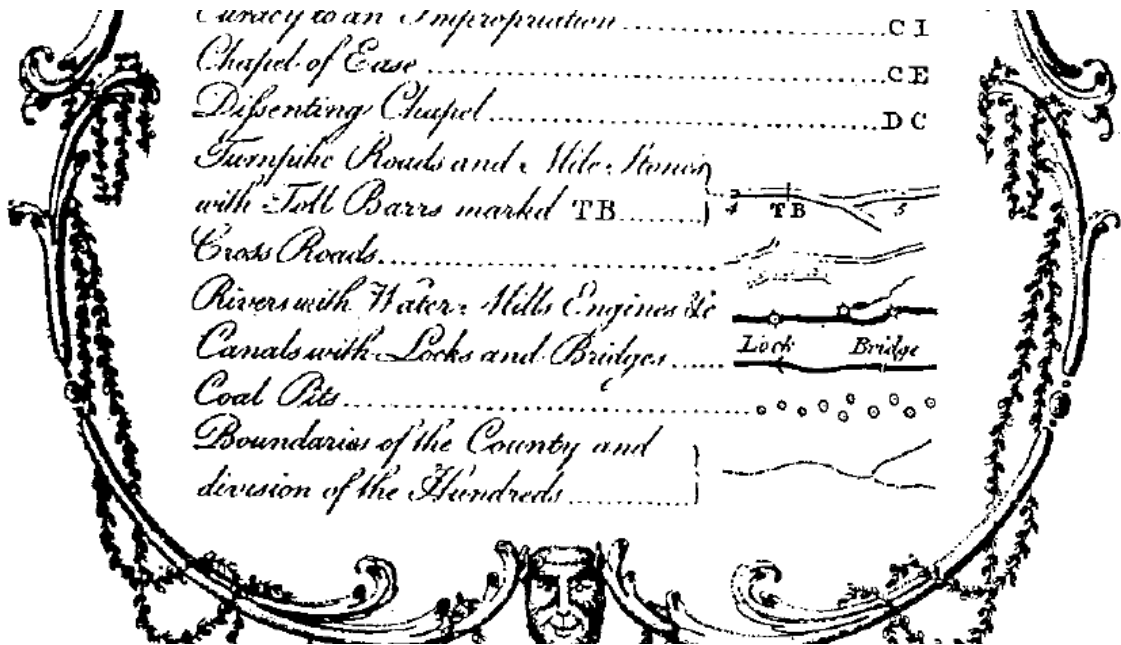 Curacy to an Impropriation ........ CI
Chapel of Ease ........ CE
Difsenting Chapel ........ DC
Turnpike Roads and Mile Stones
with Toll Barrs markd TB ........ 4 TB 5
Cross Roads ........
Rivers with Water Mills Engines &c
Canals with Locks and Bridges ........ Lock Bridge
Coal Pits ........
Boundaries of the County and
division of the Hundreds ........